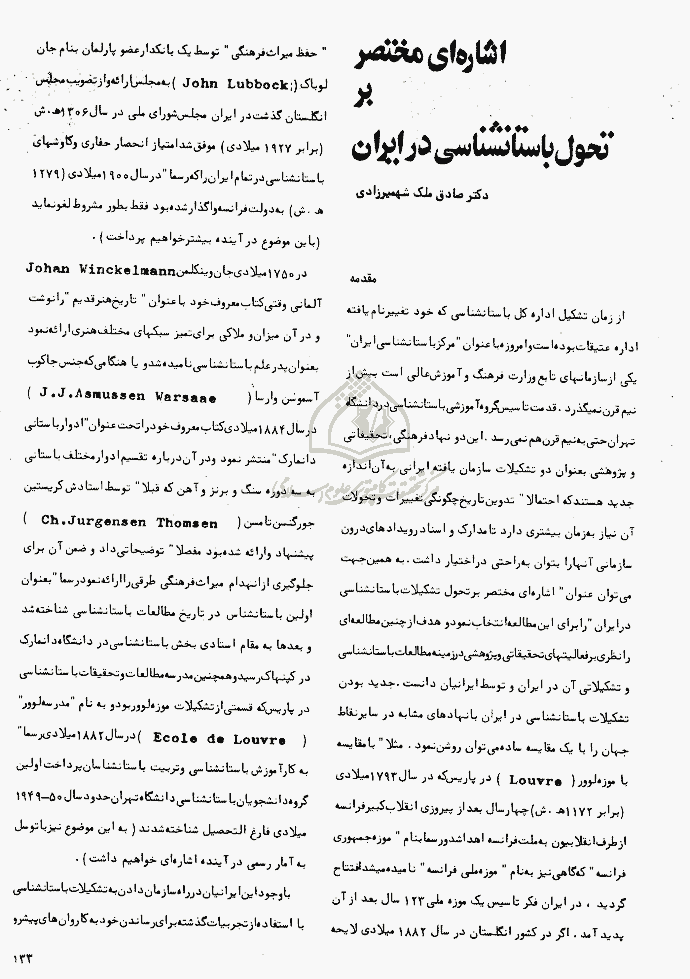 اشاره‌ای مختصر
بر
تحول باستانشناسی در ایران
دکتر صادق ملک شهمیرزادی
مقدمه
از زمان تشکیل اداره کل باستانشناسی که خود تغییرنام یافته
اداره عتیقات بوده است و امروزه با عنوان "مرکز باستانشناسی ایران"
یکی از سازمانهای تابع وزارت فرهنگ و آموزش عالی است بیش از
نیم قرن نمیگذرد. قدمت تاسیس گروه آموزشی باستانشناسی در دانشگاه
تهران حتی به نیم قرن هم نمی‌رسد. این دو نهاد فرهنگی، تحقیقاتی
و پژوهشی بعنوان دو تشکیلات سازمان یافته ایرانی به آن اندازه
جدید هستند که احتمالا" تدوین تاریخ چگونگی تغییرات و تحولات
آن نیاز به زمان بیشتری دارد تا مدارک و اسناد رویدادهای درون
سازمانی آنها را بتوان به راحتی در اختیار داشت. به همین جهت
می‌توان عنوان "اشاره‌ای مختصر بر تحول تشکیلات باستانشناسی
در ایران" را برای این مطالعه انتخاب نمود و هدف از چنین مطالعه‌ای
را نظری بر فعالیتهای تحقیقاتی و پژوهشی در زمینه مطالعات باستانشناسی
و تشکیلاتی آن در ایران و توسط ایرانیان دانست. جدید بودن
تشکیلات باستانشناسی در ایران با نهادهای مشابه در سایر نقاط
جهان را با یک مقایسه ساده می‌توان روشن نمود. مثلا" با مقایسه
با موزه لوور (Louvre) در پاریس که در سال ۱۷۹۳ میلادی
(برابر ۱۱۷۲ ه‍.ش) چهار سال بعد از پیروزی انقلاب کبیر فرانسه
از طرف انقلابیون به ملت فرانسه اهدا شد و رسما بنام "موزه جمهوری
فرانسه" که گاهی نیز به نام "موزه ملی فرانسه" نامیده میشد افتتاح
گردید، در ایران فکر تاسیس یک موزه ملی ۱۲۳ سال بعد از آن
پدید آمد. اگر در کشور انگلستان در سال ۱۸۸۲ میلادی لایحه
"حفظ میراث فرهنگی" توسط یک بانکدار عضو پارلمان بنام جان
لوباک (John Lubbock;) به مجلس ارائه و از تصویب مجلس
انگلستان گذشت در ایران مجلس شورای ملی در سال ۱۳۰۶ ه‍.ش
(برابر ۱۹۲۷ میلادی) موفق شد امتیاز انحصار حفاری و کاوشهای
باستانشناسی در تمام ایران را که رسما" در سال ۱۹۰۰ میلادی (۱۲۷۹
ه‍.ش) به دولت فرانسه واگذار شده بود فقط بطور مشروط لغو نماید
(باین موضوع در آینده بیشتر خواهیم پرداخت).
در ۱۷۵۰ میلادی جان وینکلمن Johan Winckelmann
آلمانی وقتی کتاب معروف خود با عنوان "تاریخ هنر قدیم" را نوشت
و در آن میزان و ملاکی برای تمیز سبکهای مختلف هنری ارائه نمود
بعنوان پدر علم باستانشناسی نامیده شد و یا هنگامی که جنس جاکوب
آسموسن وارسا (J.J.Asmussen Warsaae)
در سال ۱۸۸۴ میلادی کتاب معروف خود را تحت عنوان "ادوار باستانی
دانمارک" منتشر نمود و در آن درباره تقسیم ادوار مختلف باستانی
به سه دوره سنگ و برنز و آهن که قبلا" توسط استادش کریستین
جورگنسن تامسن (Ch.Jurgensen Thomsen)
پیشنهاد و ارائه شده بود مفصلا" توضیحاتی داد و ضمن آن برای
جلوگیری از انهدام میراث فرهنگی طرقی را ارائه نمود رسما" بعنوان
اولین باستانشناس در تاریخ مطالعات باستانشناسی شناخته شد
و بعدها به مقام استادی بخش باستانشناسی در دانشگاه دانمارک
در کپنهاک رسید و همچنین مدرسه مطالعات و تحقیقات باستانشناسی
در پاریس که قسمتی از تشکیلات موزه لوور بود و به نام "مدرسه لوور"
(Ecole de Louvre) در سال ۱۸۸۲ میلادی رسما"
به کار آموزش باستانشناسی و تربیت باستانشناسان پرداخت اولین
گروه دانشجویان باستانشناسی دانشگاه تهران حدود سال ۵۰–۱۹۴۹
میلادی فارغ التحصیل شناخته شدند (به این موضوع نیز با توسل
به آمار رسمی در آینده اشاره‌ای خواهیم داشت).
با وجود این ایرانیان در راه سازمان دادن به تشکیلات باستانشناسی
با استفاده از تجربیات گذشته برای رساندن خود به کاروان‌های پیشرو
۱۳۳